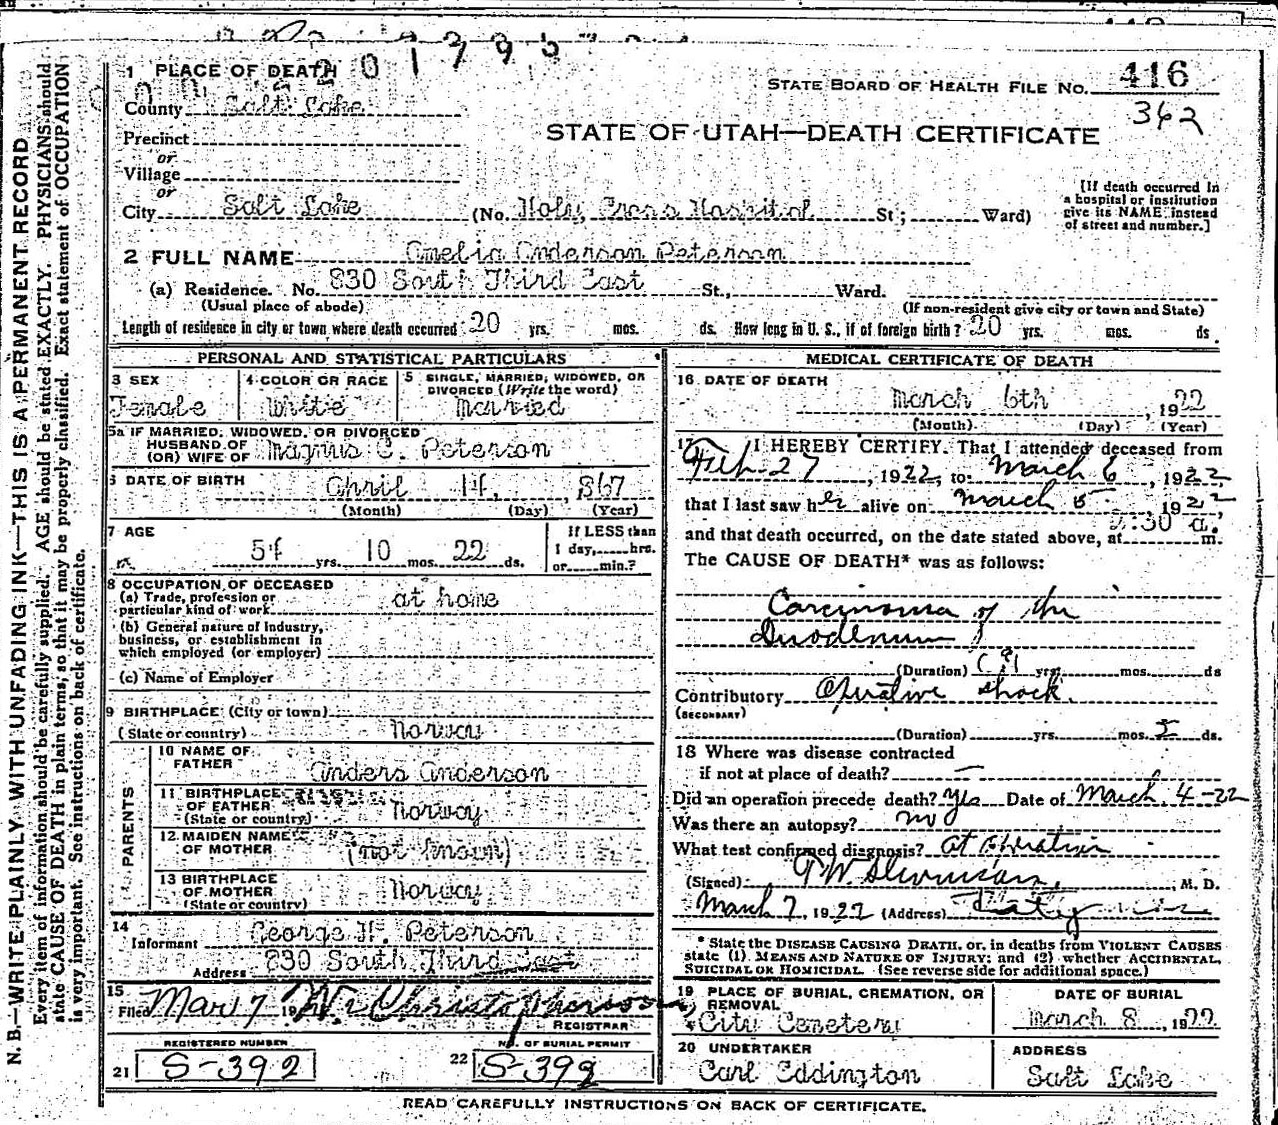 1 PLACE OF DEATH
STATE BOARD OF HEALTH FILE NO. 416
362
County Salt Lake
STATE OF UTAH—DEATH CERTIFICATE
Precinct
or
Village
or
City Salt Lake (No. Holy Cross Hospital St; Ward)
[If death occurred in a hospital or institution give its NAME instead of street and number.]
2 FULL NAME Amelia Anderson Peterson
(a) Residence. No. 830 South Third East St., Ward.
(Usual place of abode) (If non-resident give city or town and State)
Length of residence in city or town where death occurred 20 yrs. mos. ds. How long in U. S., if of foreign birth? 20 yrs. mos. ds.
PERSONAL AND STATISTICAL PARTICULARS
3 SEX Female
4 COLOR OR RACE White
5 SINGLE, MARRIED, WIDOWED, OR DIVORCED (Write the word) Married
5a IF MARRIED, WIDOWED, OR DIVORCED
HUSBAND OF
(OR) WIFE OF Magnus C. Peterson
6 DATE OF BIRTH April 14, 1867
(Month) (Day) (Year)
7 AGE 54 yrs. 10 mos. 22 ds.
If LESS than 1 day, hrs. or min.?
8 OCCUPATION OF DECEASED
(a) Trade, profession or particular kind of work at home
(b) General nature of Industry, business, or establishment in which employed (or employer)
(c) Name of Employer
9 BIRTHPLACE (City or town)
(State or country) Norway
PARENTS
10 NAME OF FATHER Anders Anderson
11 BIRTHPLACE OF FATHER (State or country) Norway
12 MAIDEN NAME OF MOTHER (not known)
13 BIRTHPLACE OF MOTHER (State or country) Norway
14 Informant George H. Peterson
Address 830 South Third East
15 Filed Mar 7 192
REGISTRAR
REGISTERED NUMBER
21 S-392
NO. OF BURIAL PERMIT
22 S-392
MEDICAL CERTIFICATE OF DEATH
16 DATE OF DEATH
March 6th, 1922
(Month) (Day) (Year)
17 I HEREBY CERTIFY, That I attended deceased from
Feb-27, 1922, to March 6, 1922
that I last saw her alive on March 5, 1922,
and that death occurred, on the date stated above, at :30 a. m.
The CAUSE OF DEATH* was as follows:
Carcinoma of the
Duodenum
(Duration) yrs. mos. ds
Contributory Operative shock.
(SECONDARY)
(Duration) yrs. mos. 2 ds.
18 Where was disease contracted
if not at place of death? —
Did an operation precede death? Yes Date of March 4-22
Was there an autopsy? no
What test confirmed diagnosis? at operation
(Signed) M. D.
March 7, 1922 (Address)
* State the DISEASE CAUSING DEATH, or, in deaths from VIOLENT CAUSES
state (1) MEANS AND NATURE OF INJURY; and (2) whether ACCIDENTAL,
SUICIDAL OR HOMICIDAL. (See reverse side for additional space.)
19 PLACE OF BURIAL, CREMATION, OR REMOVAL City Cemetery
DATE OF BURIAL March 8, 1922
20 UNDERTAKER Carl Eddington
ADDRESS Salt Lake
READ CAREFULLY INSTRUCTIONS ON BACK OF CERTIFICATE.
N. B.—WRITE PLAINLY, WITH UNFADING INK—THIS IS A PERMANENT RECORD
Every item of information should be carefully supplied. AGE should be stated EXACTLY. PHYSICIANS should
state CAUSE OF DEATH in plain terms, so that it may be properly classified. Exact statement of OCCUPATION
is very important. See instructions on back of certificate.